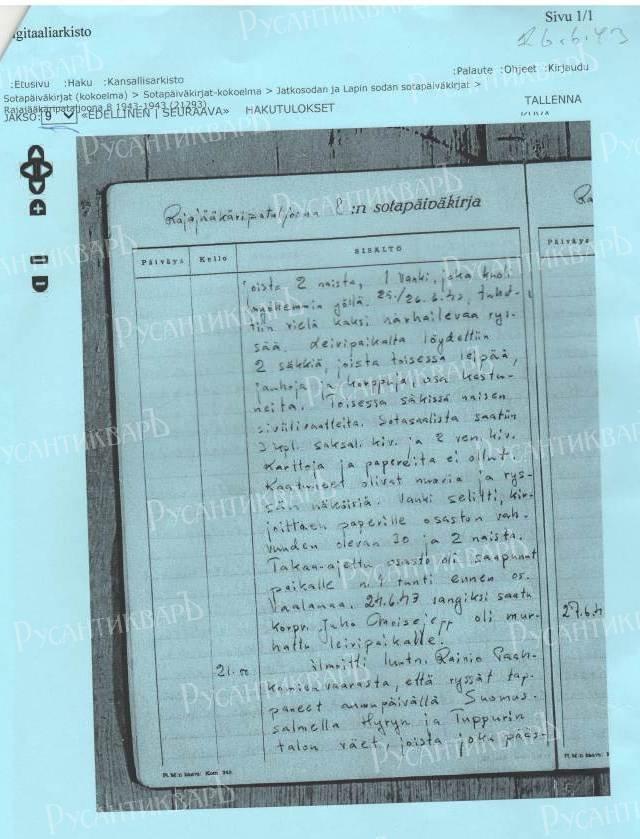 igitaaliarkisto
Sivu 1/1
26.6.43
:Etusivu :Haku :Kansallisarkisto
:Palaute :Ohjeet :Kirjaudu
Sotapäiväkirjat (kokoelma) > Sotapäiväkirjat-kokoelma > Jatkosodan ja Lapin sodan sotapäiväkirjat >
Rajajääkäripataljoona 8 1943-1943 (21293)
JAKSO: 9 «EDELLINEN | SEURAAVA» HAKUTULOKSET
TALLENNA
Rajajääkäripataljoona 8 :n sotapäiväkirja
Päiväys Kello SISÄLTÖ
Päiväys
joista 2 naista, 1 vanki, joka kuoli
myöhemmin yöllä. 25./26.6.43, tuhot-
tiin vielä kaksi harhailevaa rys-
sää. Leiripaikalta löydettiin
2 säkkiä, joista toisessa leipää,
jauhoja ja korppuja, osa kastu-
neita. Toisessa säkissä naisen
siviilivaatteita. Sotasaalista saatiin
3 kpl. saksal. kiv. ja 2 ven. kiv.
Karttoja ja papereita ei ollut.
Kaatuneet olivat nuoria ja rys-
sän näköisiä. Vanki selitti, kir-
joittaen paperille osaston vah-
vuuden olevan 30 ja 2 naista.
Takaa-ajettu osasto oli saapunut
paikalle n. 1 tunti ennen os.
Vaalamaa. 24.6.43 vangiksi saatu
korpr. Juho oli mur-
hattu leiripaikalle.
27.6.4
21.00 ilmoitti luutn. Rainio Paah-
komienvaarasta, että ryssät tap-
paneet aamupäivällä Suomus-
salmella Hyryn ja Tuppurin
talon väet, joista joku pääs-
Pl. M:n kaava: Kom. 340.
Pl. M:n kaava:
РусАнтикварЪ